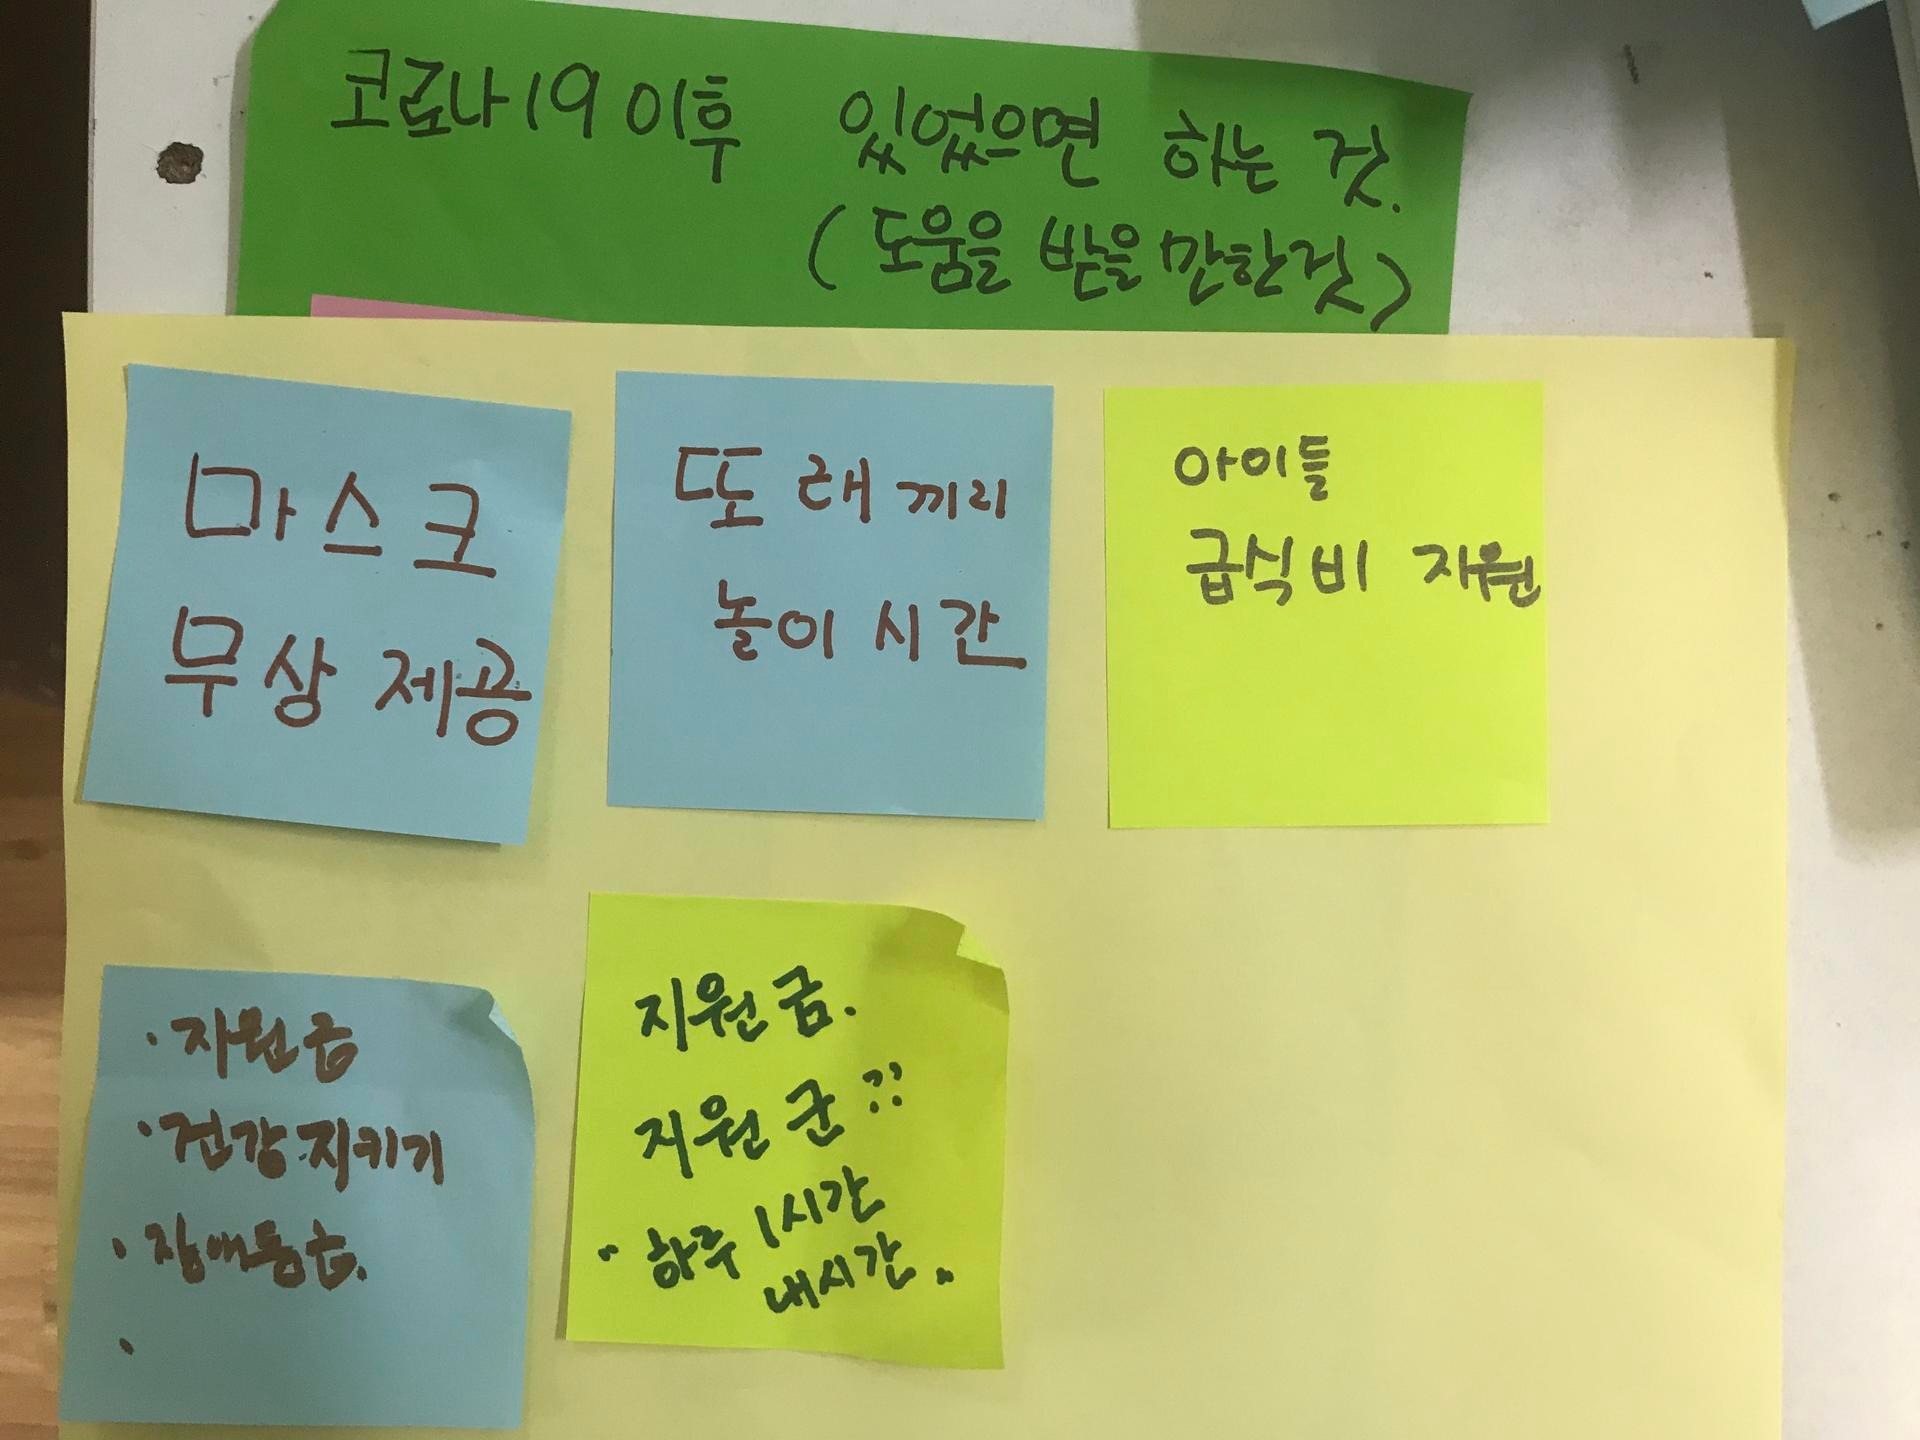 코로나19 이후 있었으면 하는 것.
(도움을 받을만한것)
마스크
무상 제공
또래끼리
놀이 시간
아이들
급식비 지원
· 지원금
· 건강 지키기
· 장애등급.
·
지원금.
지원군 ??
" 하루 1시간
내시간 "